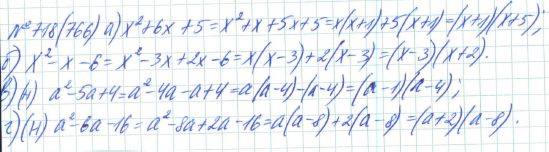 №718(766) а) x²+6x+5=x²+x+5x+5=x(x+1)+5(x+1)=(x+1)(x+5);
б) x²-x-6=x²-3x+2x-6=x(x-3)+2(x-3)=(x-3)(x+2).
в)(н) a²-5a+4=a²-4a-a+4=a(a-4)-(a-4)=(a-1)(a-4);
г)(н) a²-6a-16=a²-8a+2a-16=a(a-8)+2(a-8)=(a+2)(a-8).